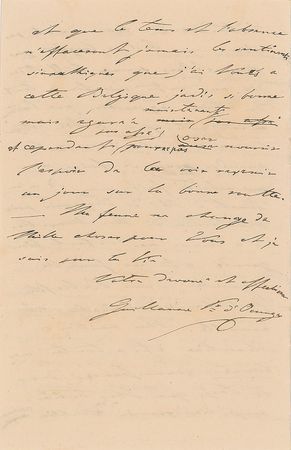 et que le tems et l'absence
n'effaceront jamais les sentiments
simpathiques que j'ai voués a
cette Belgique jadis si bonne
maintenant
mais egarée
et cependant oser nourrir
l'espoir de la voir revenir
un jour sur la bonne route.
— Ma femme me charge de
Mille choses pour Vous et je
suis pour la Vie
Votre devoué et affectionné
Guillaume Pce d'Orange